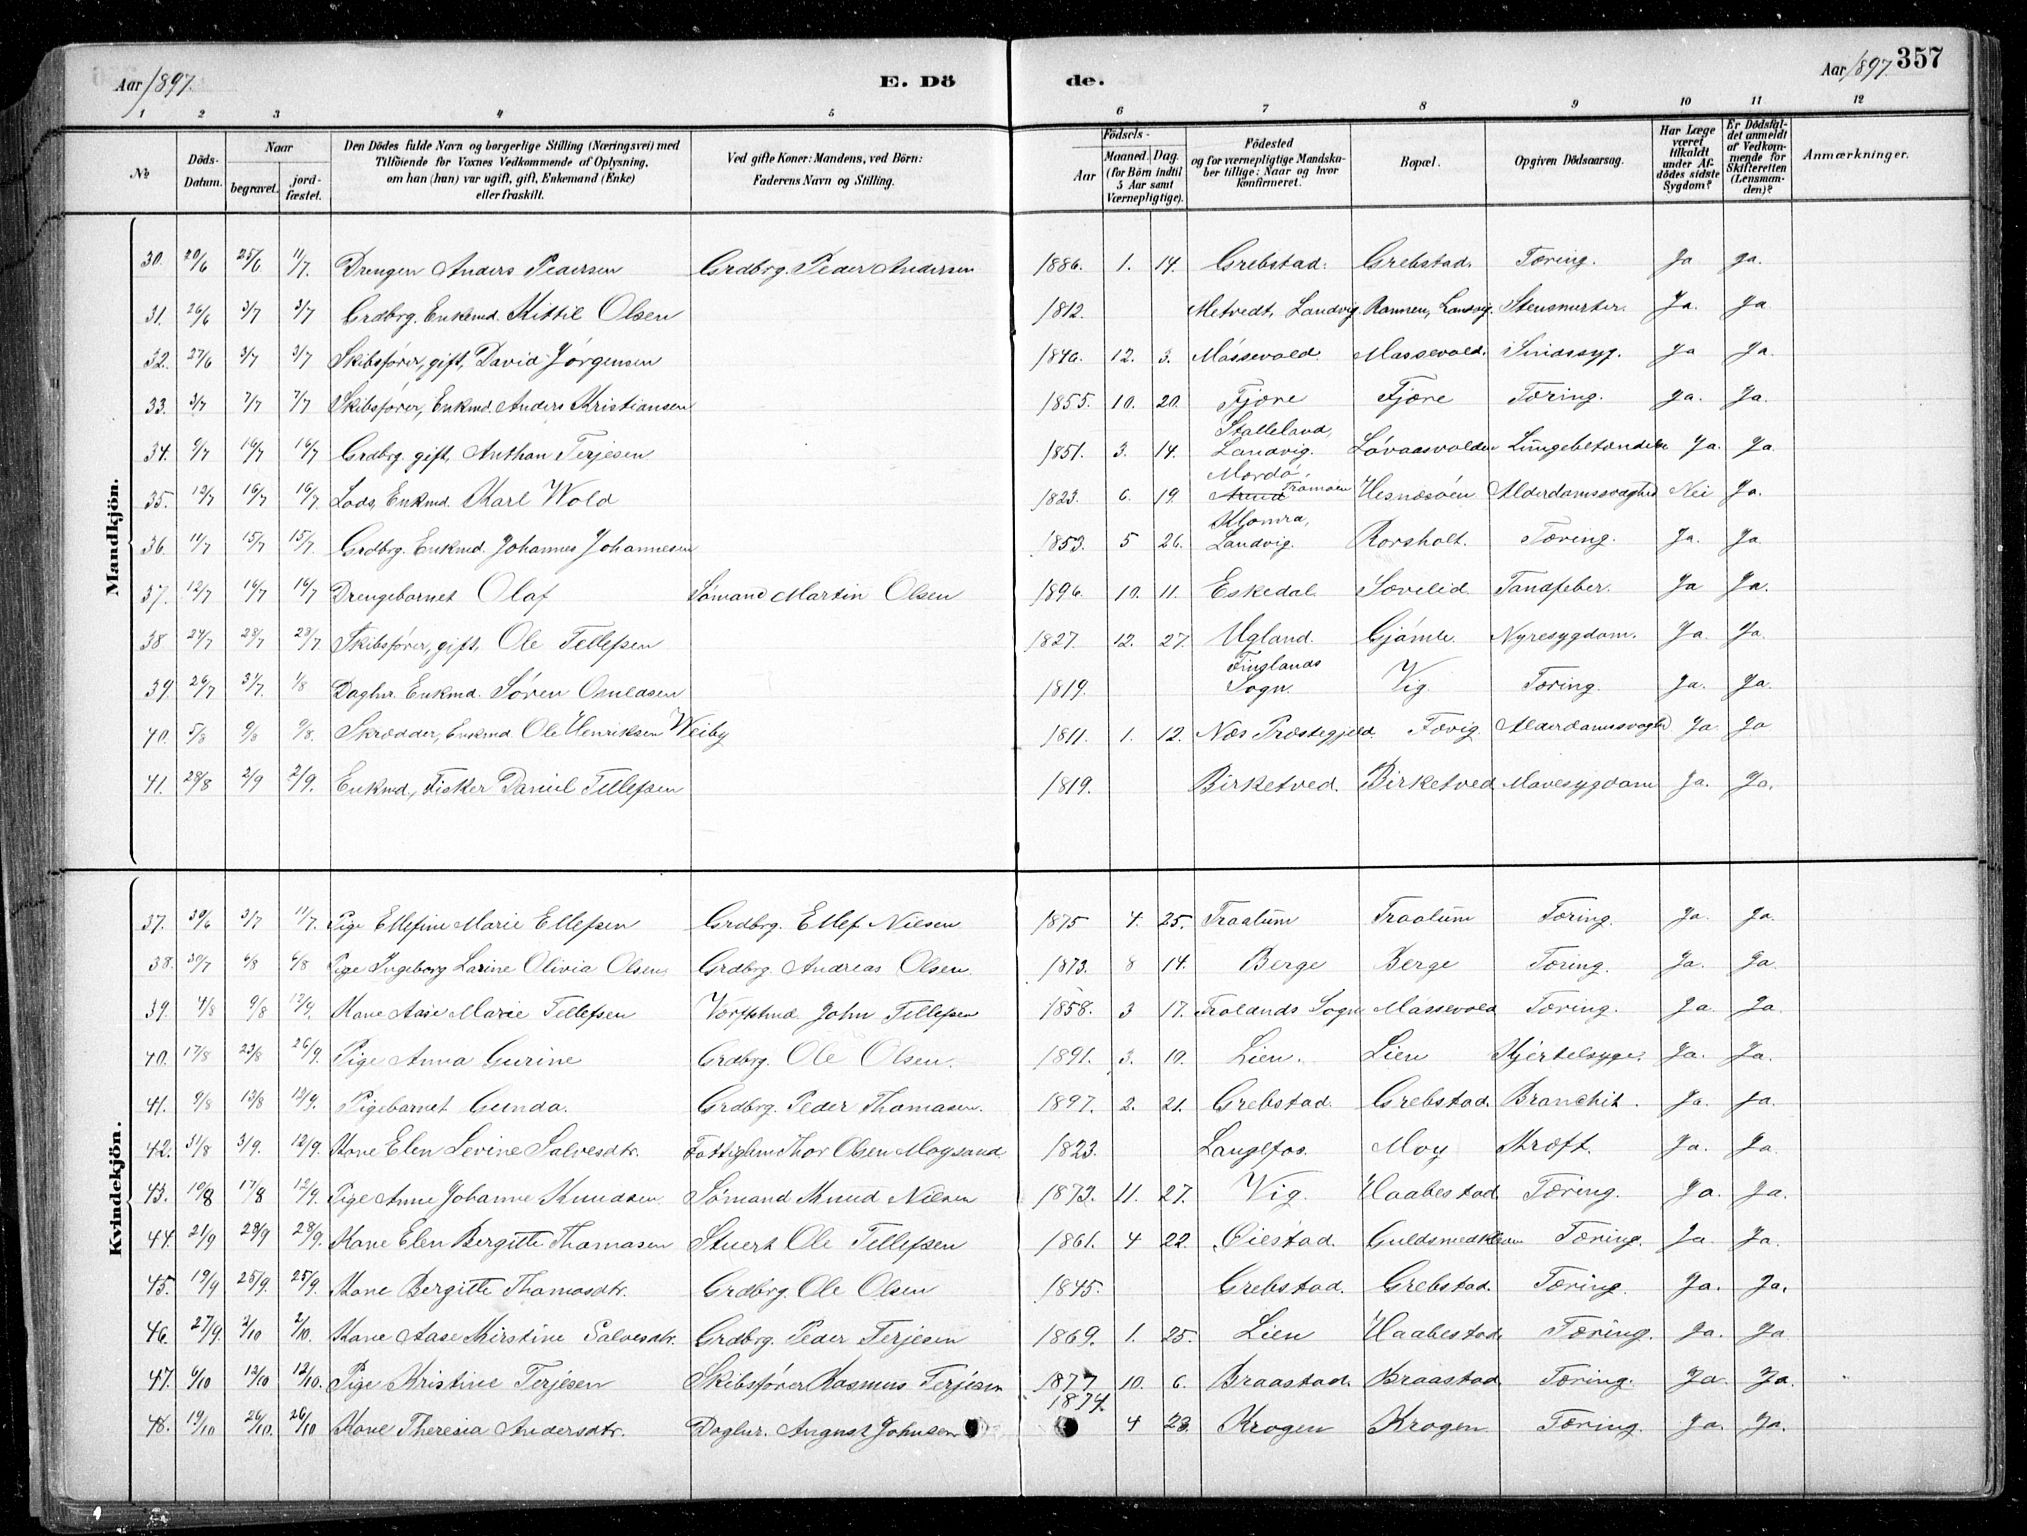 Aar 1897. E. Dö de. Aar 1897. 357
1 2 3 4 5 6 7 8 9 10 11 12
No Döds-Datum. Naar begravet. jordfæstet. Den Dödes fulde Navn og borgerlige Stilling (Næringsvei) med Tilföiende for Voxnes Vedkommende af Oplysning, om han (hun) var ugift, gift, Enkemand (Enke) eller fraskilt. Ved gifte Koner: Mandens, ved Börn: Faderens Navn og Stilling. Födsels- Aar Maaned. Dag. (for Börn indtil 5 Aar samt Værnepligtige). Födested og for værnepligtige Mandskaber tillige: Naar og hvor konfirmeret. Bopæl. Opgiven Dödsaarsag. Har Læge været tilkaldt under Afdödes sidste Sygdom? Er Dödsfaldet anmeldt af Vedkommende for Skifteretten (Lensmanden)? Anmærkninger.
Mandkjön.
30. 20/6 25/6 11/7. Drengen Anders Pedersen Grdbrg. Peder Andersen 1886. 1. 14. Grebstad. Grebstad. Tæring. Ja Ja.
31. 26/6 3/7 3/7 Grdbrg. Enkmd. Kittil Olsen 1812. Metvedt, Landvig. Rannen, Landvig. Stensmerter. Ja. Ja
32. 27/6 3/7 3/7 Skibsfører, gift, David Jørgensen 1846. 12. 3. Måssevold. Massevold. Sindssyg. Ja Ja.
33. 3/7 7/7 7/7 Skibsfører, Enkmd. Anders Kristiansen 1855. 10. 20. Fjære Fjære Tæring. Ja. Ja.
34. 9/7 16/7 16/7 Grdbrg. gift, Anthan Terjesen 1851. 3. 14. Stalleland, Landvig. Løvaasvolden Lungebetændelse Ja. Ja
35. 12/7 16/7 16/7 Lods, Enkmd. Karl Wold 1823. 6. 19. Mordø. Tromøen Hesnæsøen Alderdomssvaghed Nei Ja.
36. 11/7 15/7 15/7. Grdbrg. Enkmd. Johannes Johannesen 1853. 5 26. Klomra, Landvig. Rorsholt. Tæring. Ja. Ja
37. 12/7 16/7 16/7 Drengebarnet Olaf Sømand Martin Olsen 1896. 10. 11. Eskedal. Sævelid. Tandfeber. Ja Ja.
38 24/7 28/7 28/7 Skibsfører, gift, Ole Tellefsen 1827. 12. 27. Ugland. Gjømle. Nyresygdom. Ja. Ja.
39. 26/7 31/7. 1/8 Daglnr. Enkmd. Søren Osuldsen 1819. Finglands Sogn. Vig. Tæring. Ja. Ja.
40. 5/8 9/8 9/8. Skrædder, Enkmd Ole Henriksen Weiby 1811. 1. 12. Næs Præstegjeld. Fævig Alderdomssvaghed Ja Ja
41. 28/8 2/9 2/9. Enkmd, Fisker Daniel Tellefsen 1819. Birketved. Birketved Mavesygdom Ja. Ja.
Kvindekjön.
37. 30/6 3/7 11/7. Pige Ellefine Marie Ellefsen Grdbrg. Ellef Nielsen 1875 4. 25. Traalum Traalum Tæring. Ja. Ja
38. 30/7 6/8 6/8 Pige Ingeborg Larine Olivia Olsen Grdbrg. Andreas Olsen. 1873. 8 14. Berge Berge Tæring. Ja. Ja
39. 4/8 9/8 12/9. Kone Aase Marie Tellefsen Værftmd. John Tellefsen 1858. 3 17. Frolands Sogn Måssevold Tæring. Ja. Ja.
40. 17/8 23/8 26/9. Pige Anna Gurine Grdbrg. Ole Olsen. 1891. 3. 10. Lien. Lien Kjertelsyge. Ja. Ja.
41. 9/8 13/8 12/9. Pigebarnet Gunda. Grdbrg. Peder Thomasen. 1897. 2. 21. Grebstad. Grebstad Bronchit. Ja. Ja.
42. 31/8 3/9. 12/9. Kone Elen Sevine Salvesdtr. Fattiglem Thor Olsen Moysand 1823. Langlfos. Moy Kræft. Ja. Ja
43. 10/8 17/8 12/9. Pige Anne Johanne Knudsen. Sømand Knud Nilsen 1873. 11. 27. Vig. Haabestad. Tæring. Ja. Ja.
44. 21/9 28/9 28/9. Kone Elen Bergitte Thomasen Stuert Ole Tellefsen 1861. 4 22. Øiestad. Tæring. Ja. Ja.
45. 19/9 25/9. 25/9. Kone Bergitte Thomasdtr. Grdbrg. Ole Olsen 1845. Grebstad. Grebstad. Tæring. Ja. Ja.
46. 27/9 2/10 2/10. Kone Aase Kirstine Salvesdtr. Grdbrg. Peder Terjesen 1869. 1. 25. Lien Haabestad. Tæring. Ja. Ja
47. 6/10 12/10 12/10. Pige Kristine Terjesen Skibsfører Rasmus Terjesen 1877 10. 6. Braastad. Braastad. Tæring. Ja. Ja.
48. 19/10 26/10. 26/10 Kone Theresia Andersdtr. Daglnr. August Johnsen 1874. 4 23. Krogen Krogen Tæring. Ja. Ja.